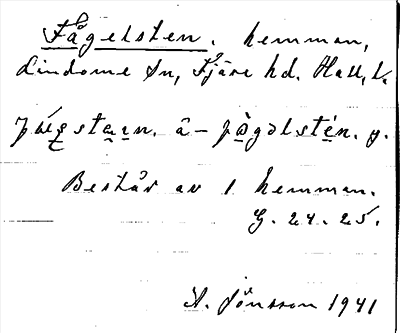 Fågelsten. hemman,
Lindome sn, Fjäre hd. Hall. l.
Består av 1 hemman.
G. 24. 25.
A. Jönsson 1941